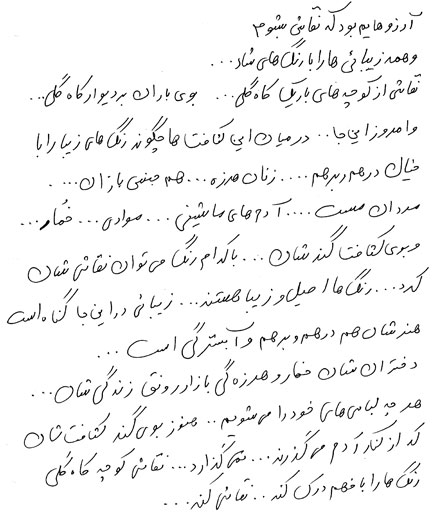 آرزوهایم بود که نقاش بشوم
و همه زیبائی ها را با رنگ های شاد...
نقاشی از کوچه های باریک کاه گلی... بوی باران بر دیوار کاه گلی...
و امروز این جا.. در میان این کثافت ها چگونه رنگ های زیبا را با
خیال درهم و برهم .... زنان هرزه... هم جنس بازان....
مردان مست .... آدم های ماشینی ... موادی... خمار...
و بوی کثافت گند شان ... با کدام رنگ می توان نقاشی شان
کرد... رنگ ها اصیل و زیبا هستند... زیبائی در این جا گناه است
هنر شان هم درهم و برهم و آبستر گی است ...
دختران شان خمار و هرزه گی بازار رونق زندگی شان...
هر چه لباس های خود را می شویم.. هنوز بوی گند کثافت شان
که از کنار آدم می گذرند... نمی گذارد... نقاش کوچه کاه گلی
رنگ ها را با فهم درک کند.. نقاشی کند...